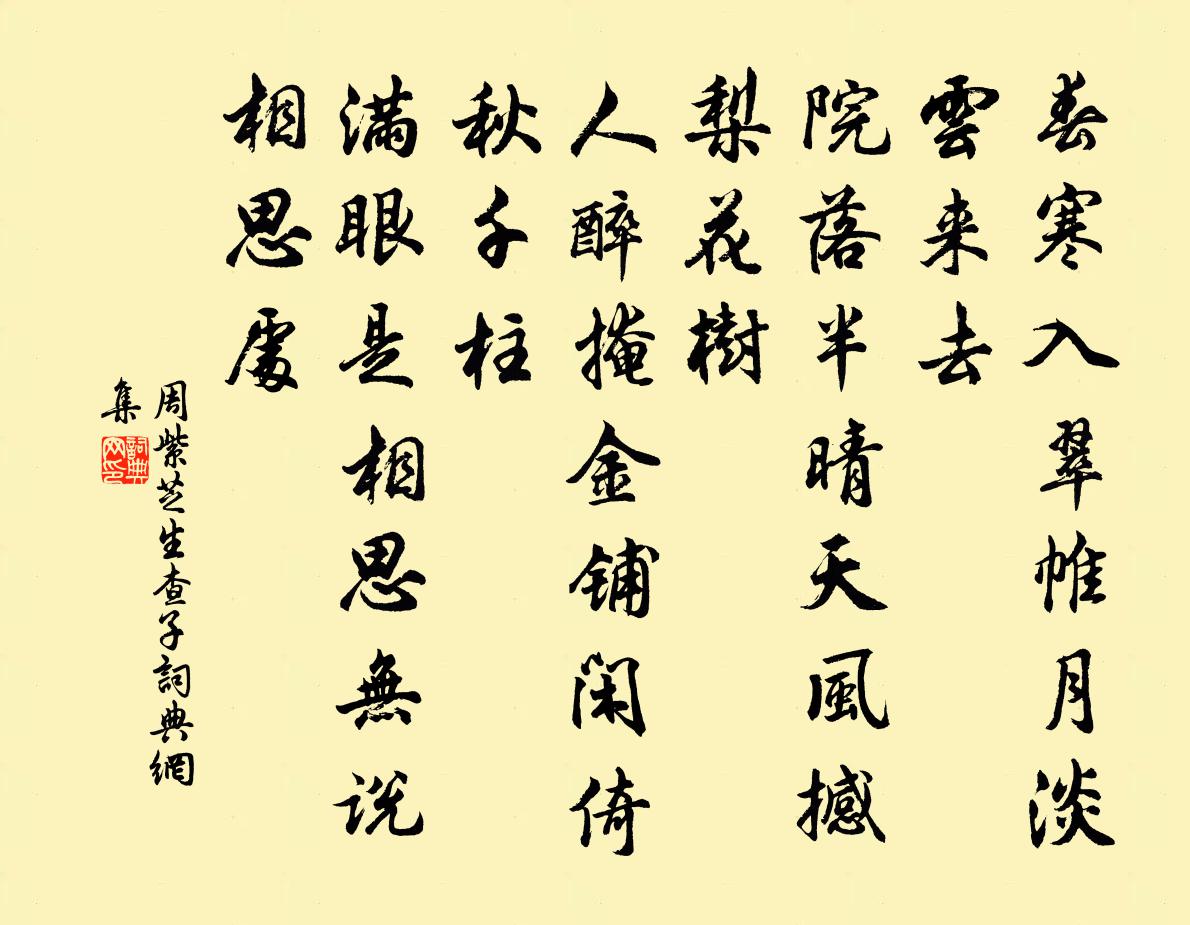 春寒入翠帷月淡
雲来去
院落半晴天風撼
梨花樹
人醉掩金鋪閑倚
秋千柱
滿眼是相思無説
相思處
周紫芝生查子詞典網
集
詞典
网印